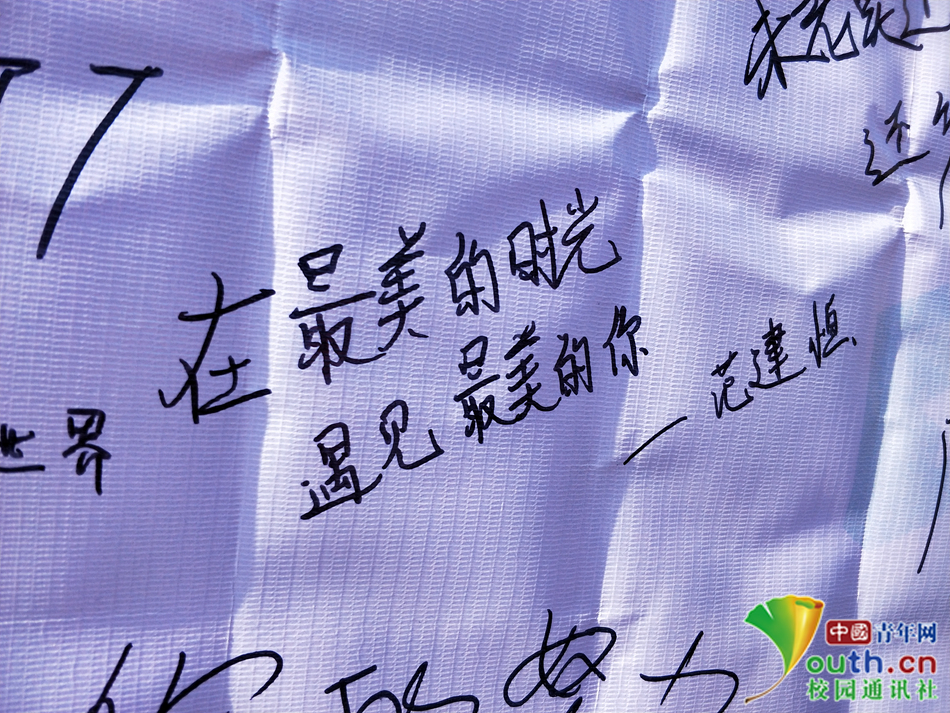 还
在最美的时光
遇见最美的你
—范建恒
世界
的努力
中国青年网
youth.cn
校园通讯社